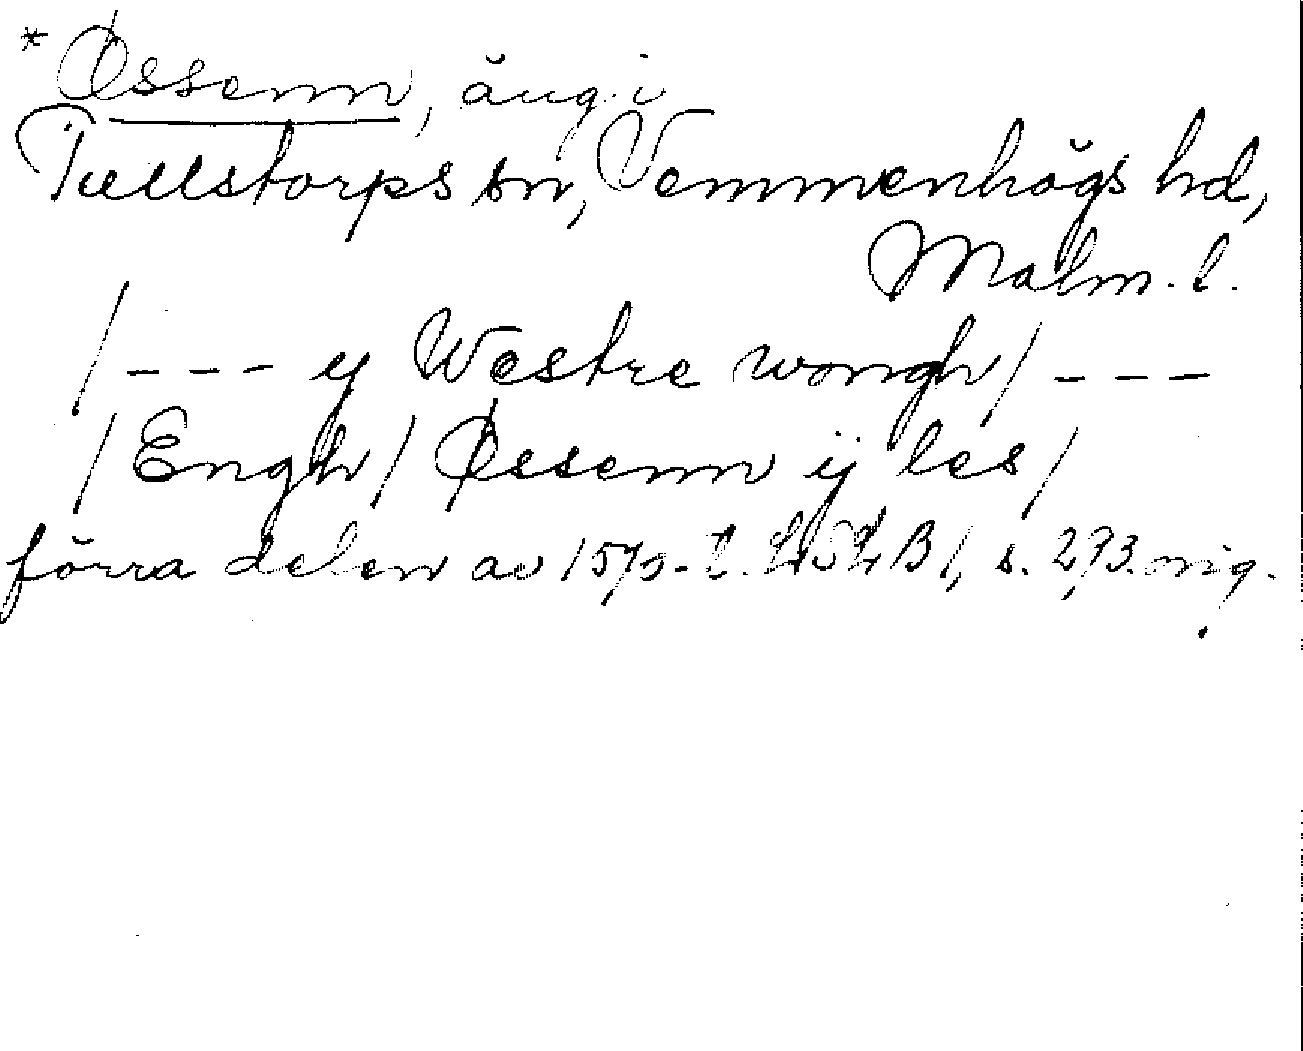 *Øssenn, äng i
Tullstorps sn, Vemmenhögs hd,
Malm. l.
/--- y Westre wongh/ ---
/Engh/ Øssenn ij les/
förra delen av 1570-t. LSLB 1, s. 293. orig.